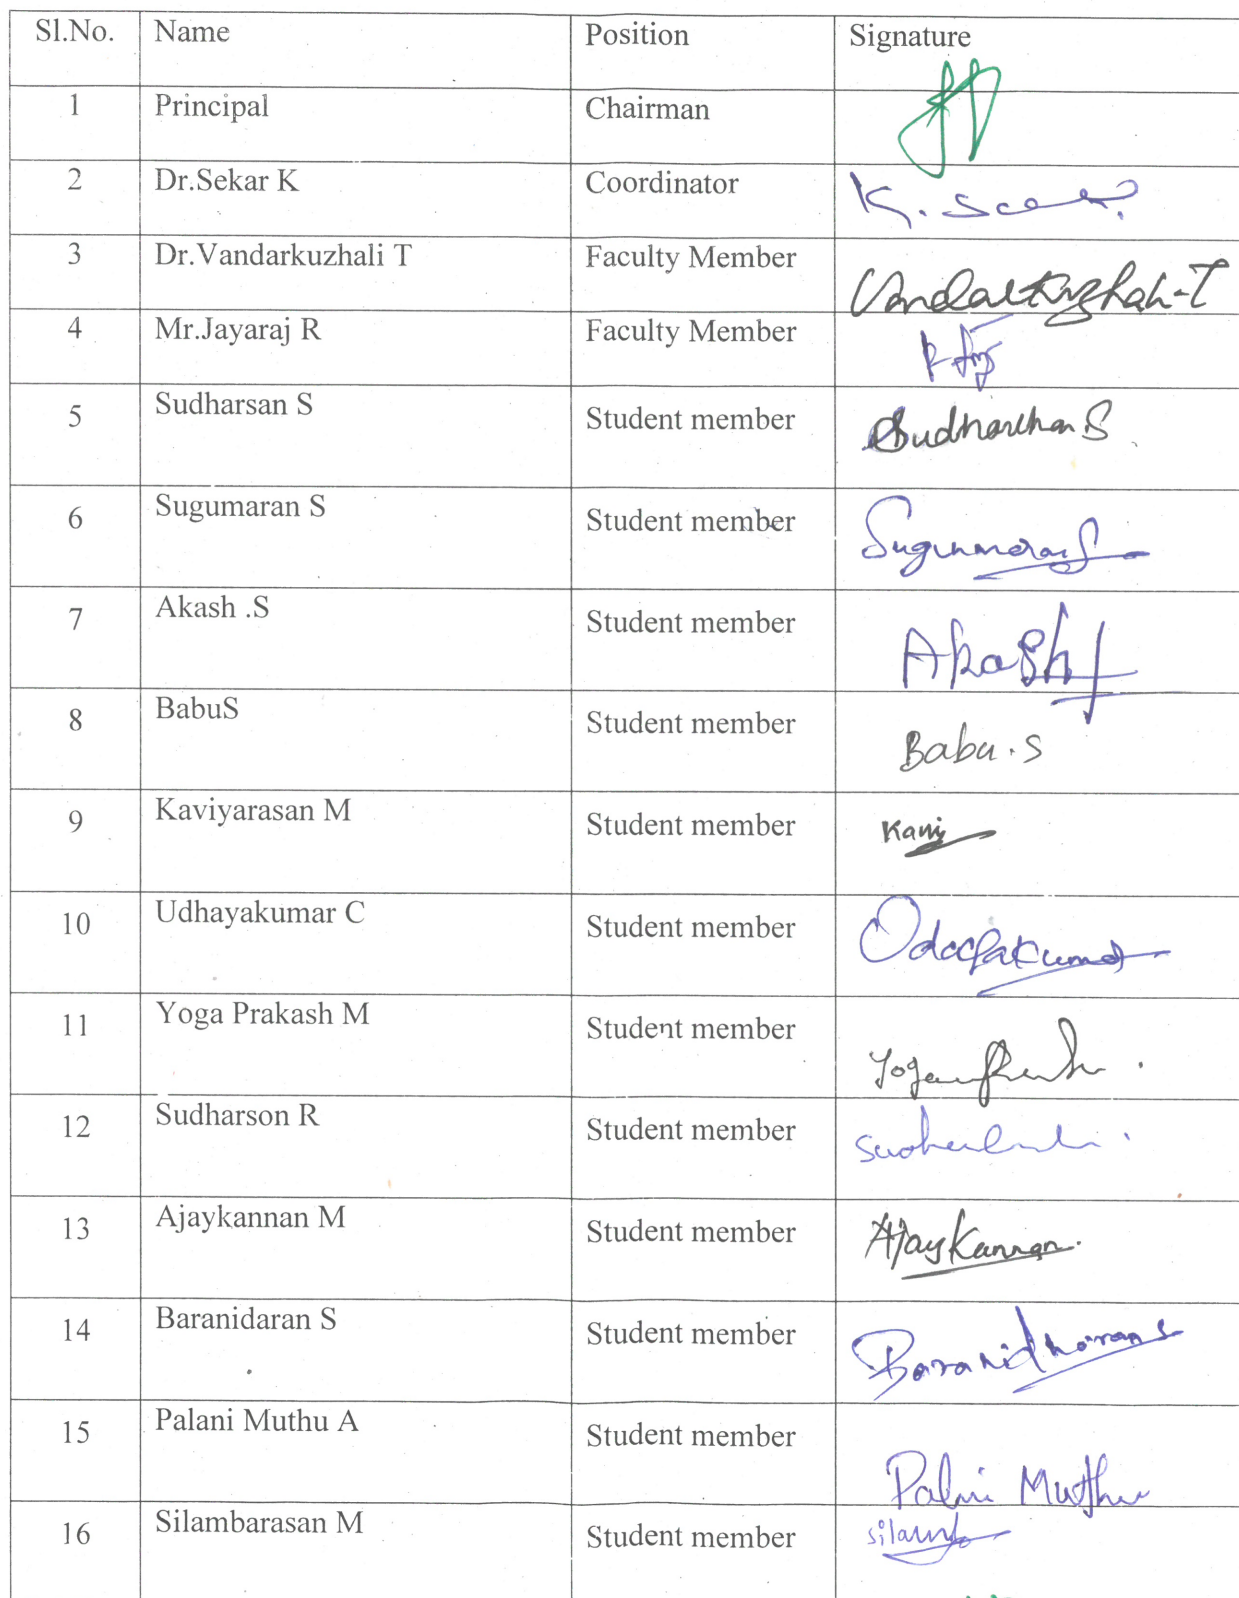 Sl.No. Name Position Signature
1 Principal Chairman
2 Dr.Sekar K Coordinator K. Seka
3 Dr.Vandarkuzhali T Faculty Member Vandarkuzhali-T
4 Mr.Jayaraj R Faculty Member
5 Sudharsan S Student member Sudharshan S
6 Sugumaran S Student member Sugumaran S
7 Akash .S Student member Akash
8 BabuS Student member Babu.S
9 Kaviyarasan M Student member Kavi
10 Udhayakumar C Student member Odayakumar
11 Yoga Prakash M Student member
12 Sudharson R Student member
13 Ajaykannan M Student member AjayKannan.
14 Baranidaran S Student member Baranidharan S
15 Palani Muthu A Student member Palni Muthu
16 Silambarasan M Student member Silamb